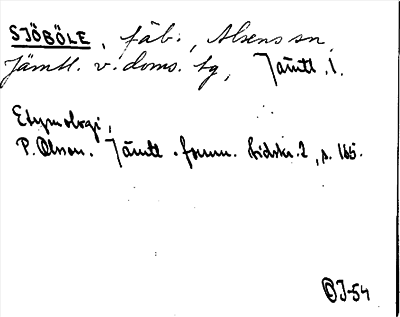 SJÖBÖLE, fäb., Alsens sn,
Jämtl. v. doms. tg, Jämtl. l.
Etymologi,
P. Olsson. Jämtl. fornm. tidskr. 2, s. 165.
OJ-54